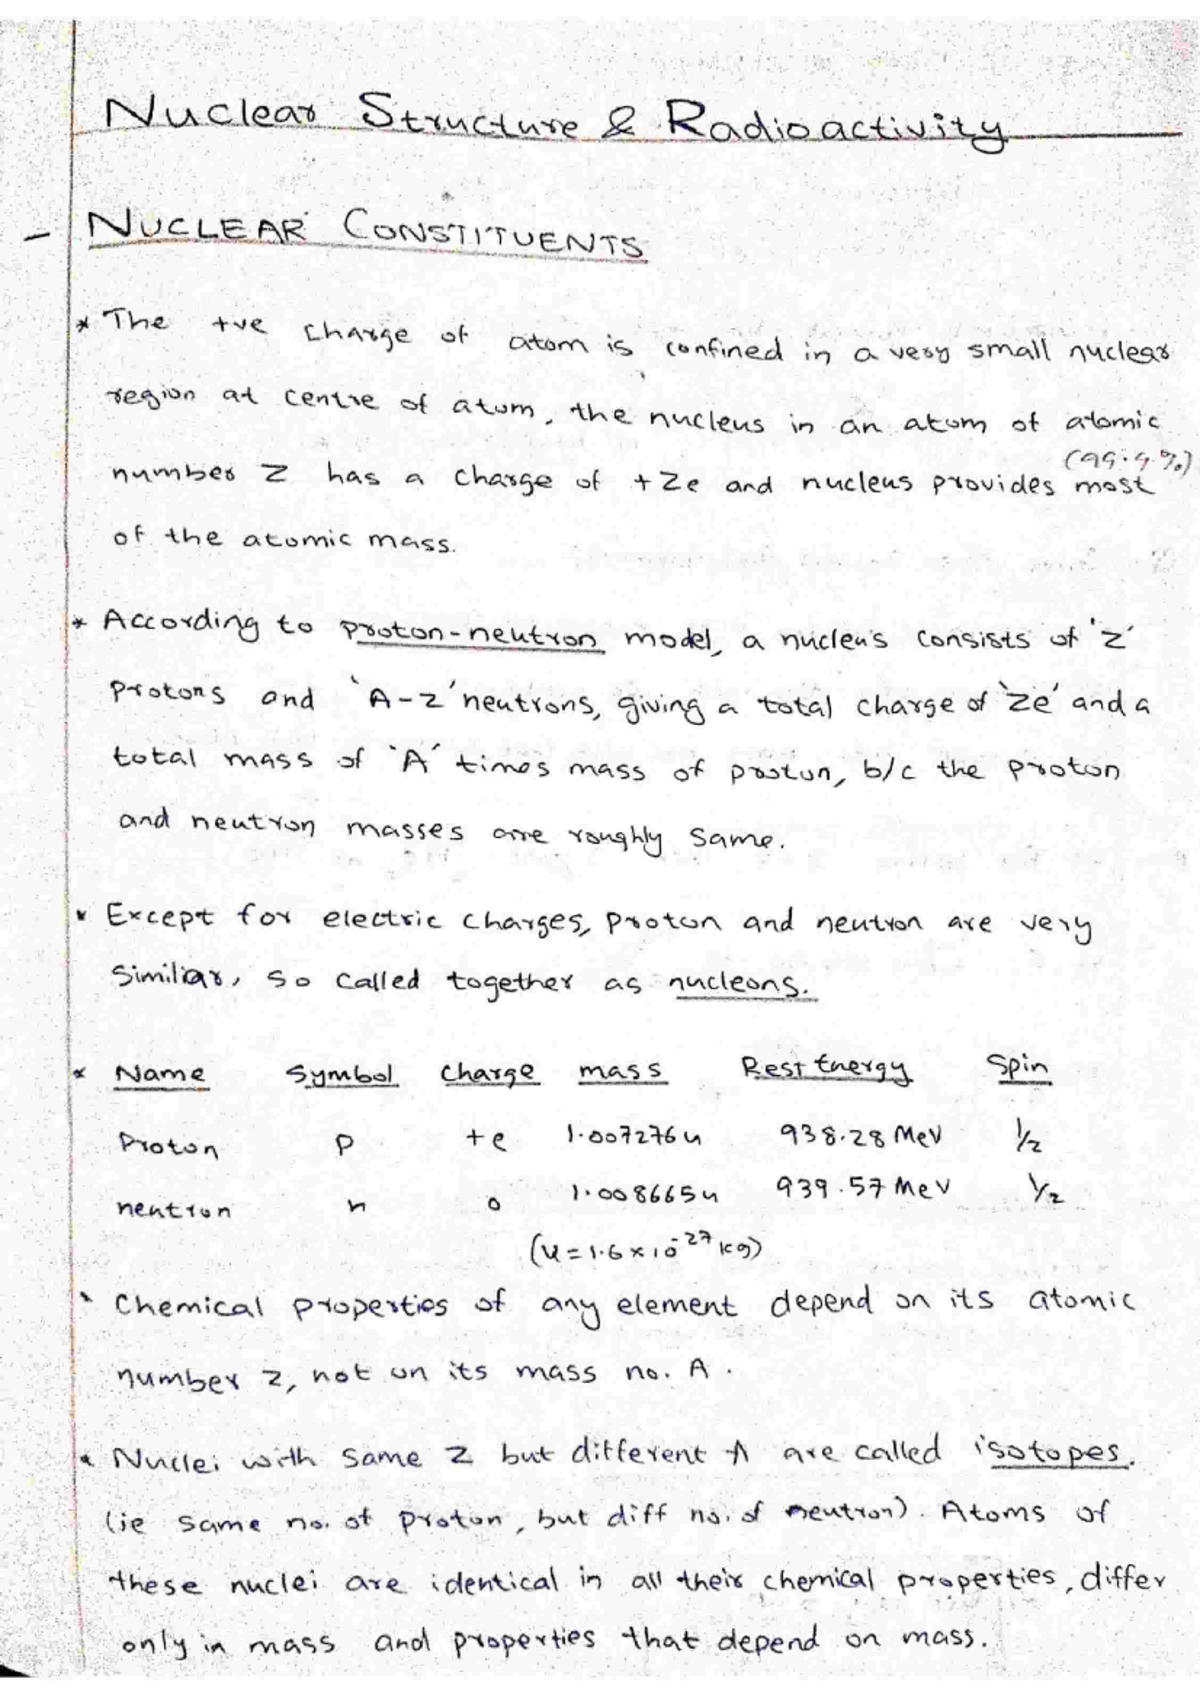 Nuclear Structure & Radioactivity
- NUCLEAR CONSTITUENTS
* The +ve charge of atom is confined in a very small nuclear
region at centre of atom, the nucleus in an atom of atomic
(99.9%)
number Z has a charge of +Ze and nucleus provides most
of the atomic mass.
* According to proton-neutron model, a nucleus consists of 'Z'
protons and 'A-Z' neutrons, giving a total charge of 'Ze' and a
total mass of 'A' times mass of proton, b/c the proton
and neutron masses are roughly same.
* Except for electric charges, proton and neutron are very
similiar, so called together as nucleons.
* Name Symbol Charge mass Rest Energy Spin
Proton p +e 1.007276u 938.28 MeV 1/2
neutron n 0 1.008665u 939.57 MeV 1/2
(u = 1.6 × 10⁻²⁷ kg)
* Chemical properties of any element depend on its atomic
number z, not on its mass no. A.
* Nuclei with same Z but different A are called isotopes.
(ie same no. of proton, but diff no. of neutron). Atoms of
these nuclei are identical in all their chemical properties, differ
only in mass and properties that depend on mass.